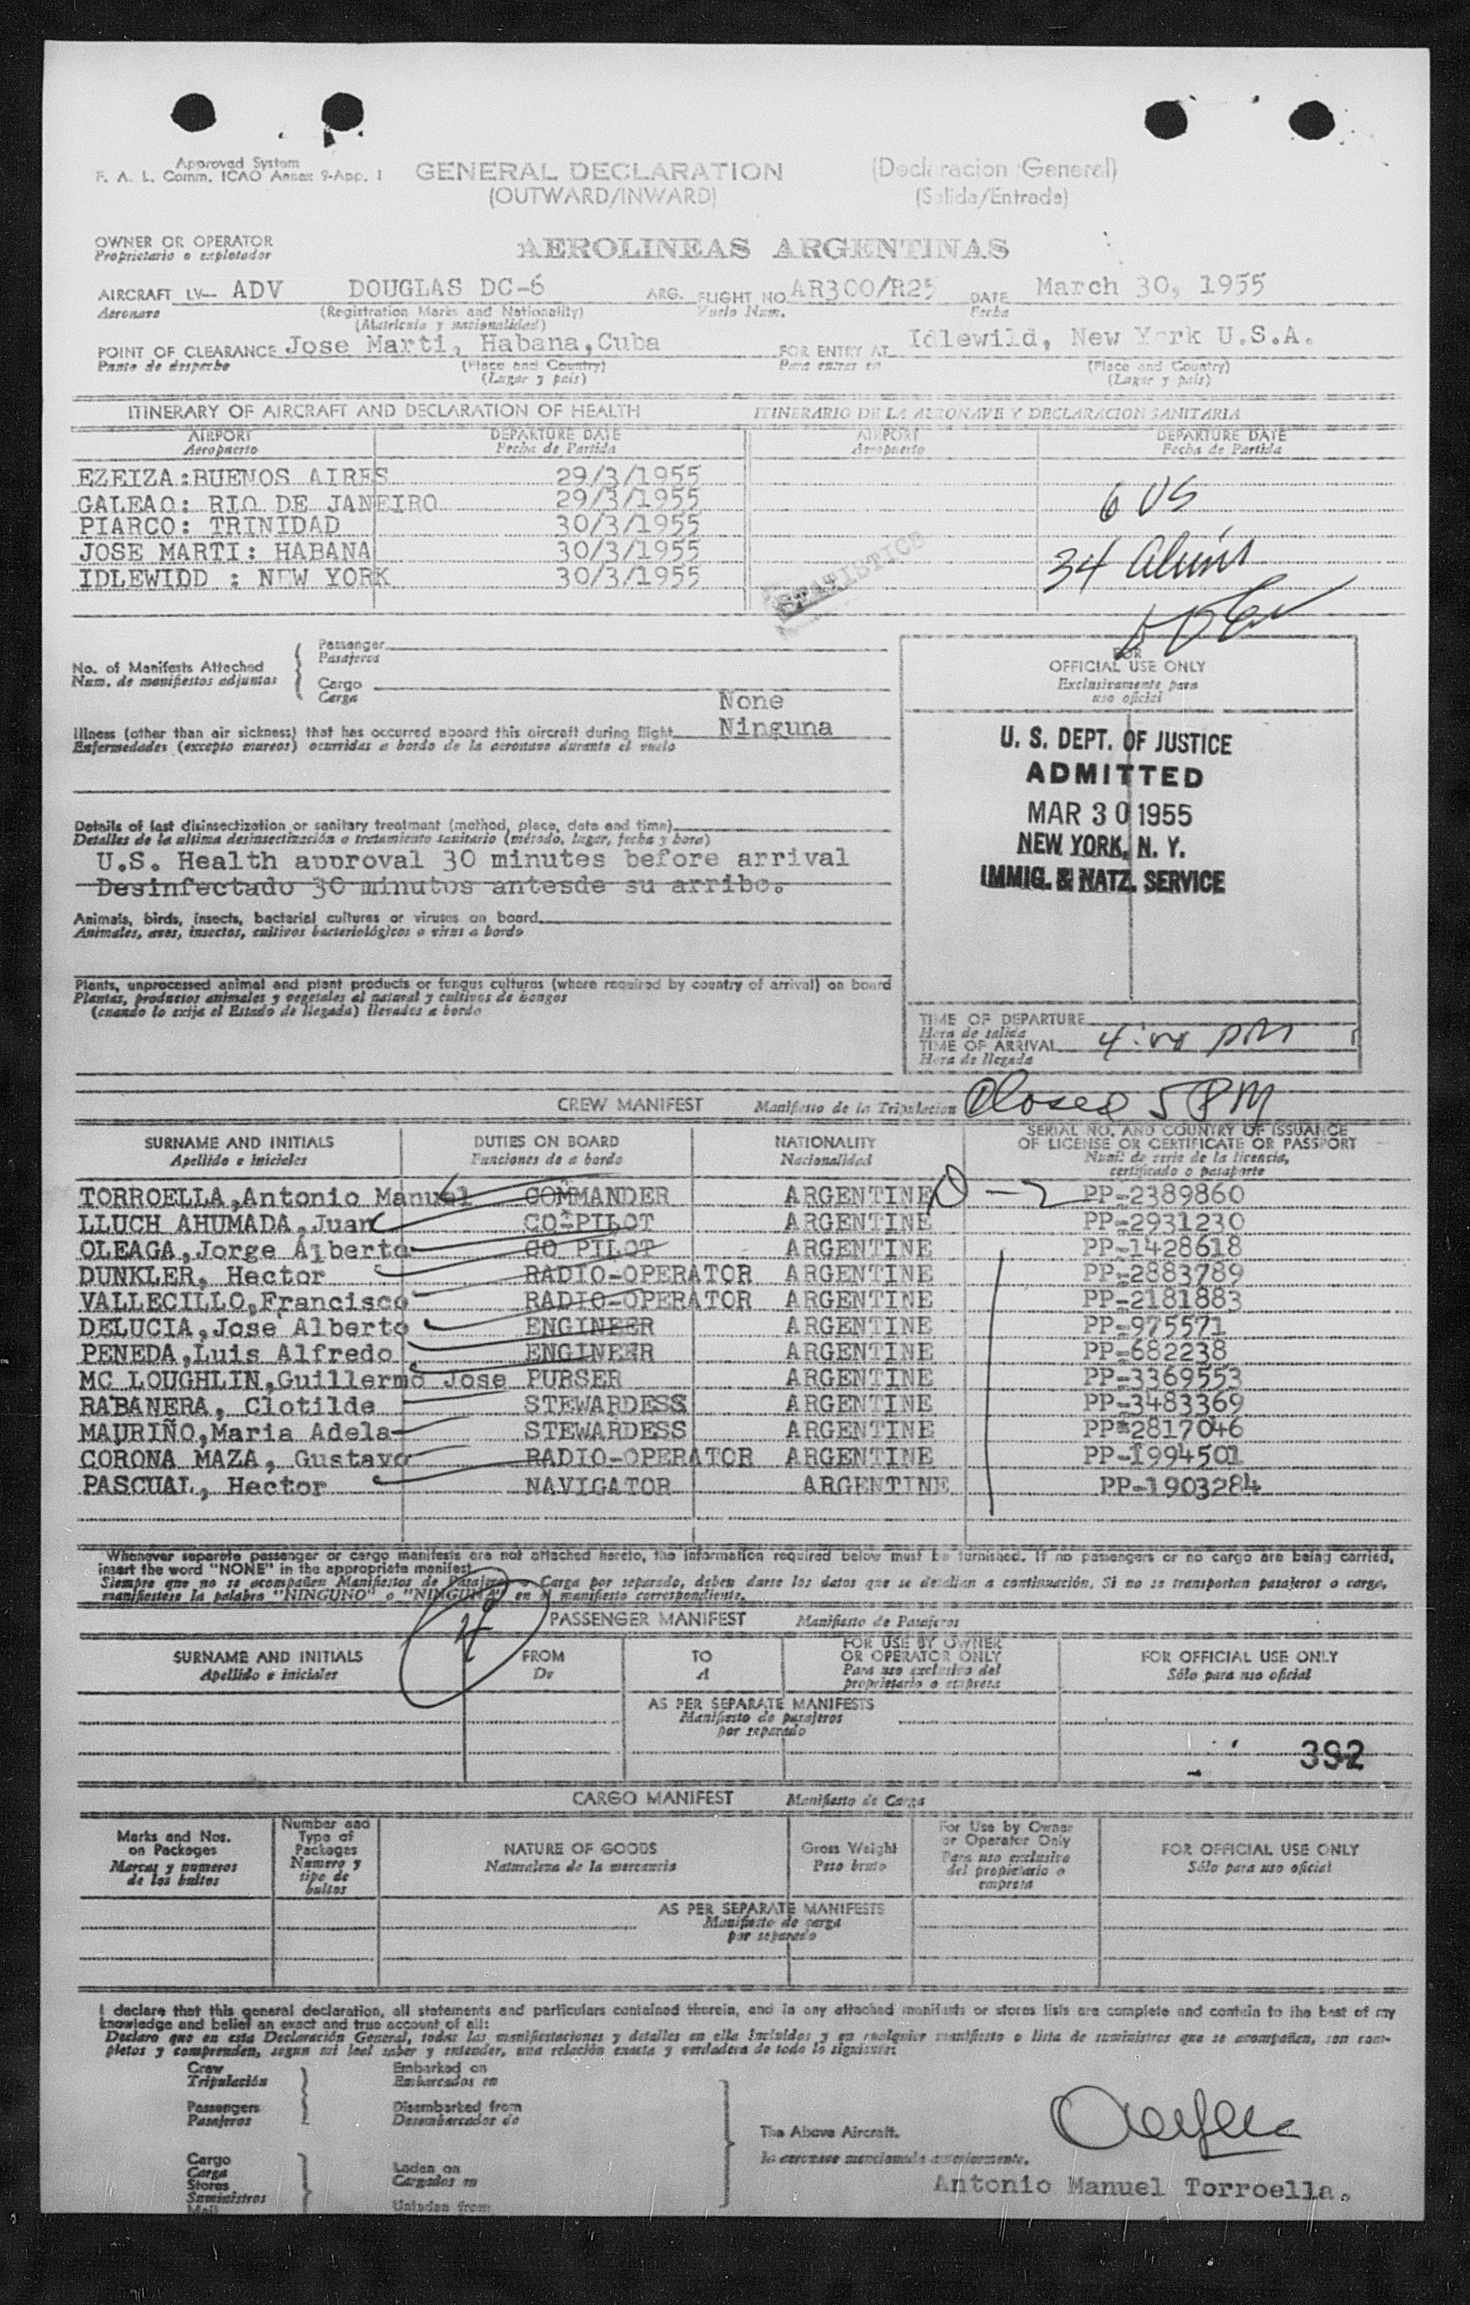 Approved System
F. A. L. Comm. ICAO Annex 9-App. 1
GENERAL DECLARATION
(OUTWARD/INWARD)
(Declaracion General)
(Salida/Entrada)
OWNER OR OPERATOR
Proprietario o explotador
AEROLINEAS ARGENTINAS
AIRCRAFT LV- ADV DOUGLAS DC-6 ARG. FLIGHT NO AR300/R25 DATE March 30, 1955
Aeronave (Registration Marks and Nationality) Vuelo Num. Fecha
(Matricula y nacionalidad)
POINT OF CLEARANCE Jose Marti, Habana,Cuba FOR ENTRY AT Idlewild, New York U.S.A.
Punto de despacho (Place and Country) Para entrar en (Place and Country)
(Lugar y pais) (Lugar y pais)
ITINERARY OF AIRCRAFT AND DECLARATION OF HEALTH ITINERARIO DE LA AERONAVE Y DECLARACION SANITARIA
AIRPORT DEPARTURE DATE AIRPORT DEPARTURE DATE
Aeropuerto Fecha de Partida Aeropuerto Fecha de Partida
EZEIZA:BUENOS AIRES 29/3/1955
GALEAO: RIO DE JANEIRO 29/3/1955 6 US
PIARCO: TRINIDAD 30/3/1955
JOSE MARTI: HABANA 30/3/1955
IDLEWIDD : NEW YORK 30/3/1955 34 Aliens
STATISTICS
No. of Manifests Attached
Num. de manifiestos adjuntos
Passenger
Pasajeros
Cargo
Carga
None
Illness (other than air sickness) that has occurred aboard this aircraft during flight Ninguna
Enfermedades (excepto mareos) ocurridas a bordo de la aeronave durante el vuelo
FOR
OFFICIAL USE ONLY
Exclusivamente para
uso oficial
U. S. DEPT. OF JUSTICE
ADMITTED
MAR 30 1955
NEW YORK, N. Y.
IMMIG. & NATZ. SERVICE
Details of last disinsectization or sanitary treatment (method, place, date and time)
Detalles de la ultima desinsectización o tratamiento sanitario (método, lugar, fecha y hora)
U.S. Health approval 30 minutes before arrival
Desinfectado 30 minutos antesde su arribo.
Animals, birds, insects, bacterial cultures or viruses on board
Animales, aves, insectos, cultivos bacteriológicos o virus a bordo
Plants, unprocessed animal and plant products or fungus cultures (where required by country of arrival) on board
Plantas, productos animales y vegetales al natural y cultivos de hongos
(cuando lo exija el Estado de llegada) llevados a bordo
TIME OF DEPARTURE
Hora de salida
TIME OF ARRIVAL 4:00 PM
Hora de llegada
Closed 5 PM
CREW MANIFEST Manifiesto de la Tripulacion
SURNAME AND INITIALS DUTIES ON BOARD NATIONALITY SERIAL NO. AND COUNTRY OF ISSUANCE
OF LICENSE OR CERTIFICATE OR PASSPORT
Apellido e iniciales Funciones de a bordo Nacionalidad Num. de serie de la licencia,
certificado o pasaporte
TORROELLA,Antonio Manuel COMMANDER ARGENTINE D-2 PP-2389860
LLUCH AHUMADA,Juan CO-PILOT ARGENTINE PP-2931230
OLEAGA,Jorge Alberto CO PILOT ARGENTINE PP-1428618
DUNKLER, Hector RADIO-OPERATOR ARGENTINE PP-2883789
VALLECILLO,Francisco RADIO-OPERATOR ARGENTINE PP-2181883
DELUCIA,Jose Alberto ENGINEER ARGENTINE PP-975571
PENEDA,Luis Alfredo ENGINEER ARGENTINE PP-682238
MC LOUGHLIN,Guillermo Jose PURSER ARGENTINE PP-3369553
RABANERA, Clotilde STEWARDESS ARGENTINE PP-3483369
MAURIÑO,Maria Adela STEWARDESS ARGENTINE PP-2817046
CORONA MAZA, Gustavo RADIO-OPERATOR ARGENTINE PP-1994501
PASCUAL, Hector NAVIGATOR ARGENTINE PP-1903284
Whenever separate passenger or cargo manifests are not attached hereto, the information required below must be furnished. If no passengers or no cargo are being carried,
insert the word "NONE" in the appropriate manifest.
Siempre que no se acompañen Manifiestos de Pasajeros o Carga por separado, deben darse los datos que se detallan a continuación. Si no se transportan pasajeros o carga,
manifiestese la palabra "NINGUNO" o "NINGUNA" en el manifiesto correspondiente.
PASSENGER MANIFEST Manifiesto de Pasajeros
SURNAME AND INITIALS FROM TO FOR USE BY OWNER
OR OPERATOR ONLY FOR OFFICIAL USE ONLY
Apellido e iniciales De A Para uso exclusivo del
proprietario o empresa Sólo para uso oficial
AS PER SEPARATE MANIFESTS
Manifiesto de pasajeros
por separado
392
CARGO MANIFEST Manifiesto de Carga
Marks and Nos.
on Packages
Marcas y numeros
de los bultos
Number and
Type of
Packages
Numero y
tipo de
bultos
NATURE OF GOODS
Naturaleza de la mercancia
Gross Weight
Peso bruto
For Use by Owner
or Operator Only
Para uso exclusivo
del propietario o
empresa
FOR OFFICIAL USE ONLY
Sólo para uso oficial
AS PER SEPARATE MANIFESTS
Manifiesto de carga
por separado
I declare that this general declaration, all statements and particulars contained therein, and in any attached manifests or stores lists are complete and contain to the best of my
knowledge and belief an exact and true account of all:
Declaro que en esta Declaración General, todas las manifestaciones y detalles en ella incluidos y en cualquier manifiesto o lista de suministros que se acompañen, son com-
pletos y comprenden, segun mi leal saber y entender, una relación exacta y verdadera de todo lo siguiente:
Crew
Tripulación
Embarked on
Embarcados en
Passengers
Pasajeros
Disembarked from
Desembarcados de
The Above Aircraft.
la aeronave mencionada anteriormente.
Cargo
Carga
Stores
Suministros
Mail
Laden on
Cargados en
Unladen from
Antonio Manuel Torroella.